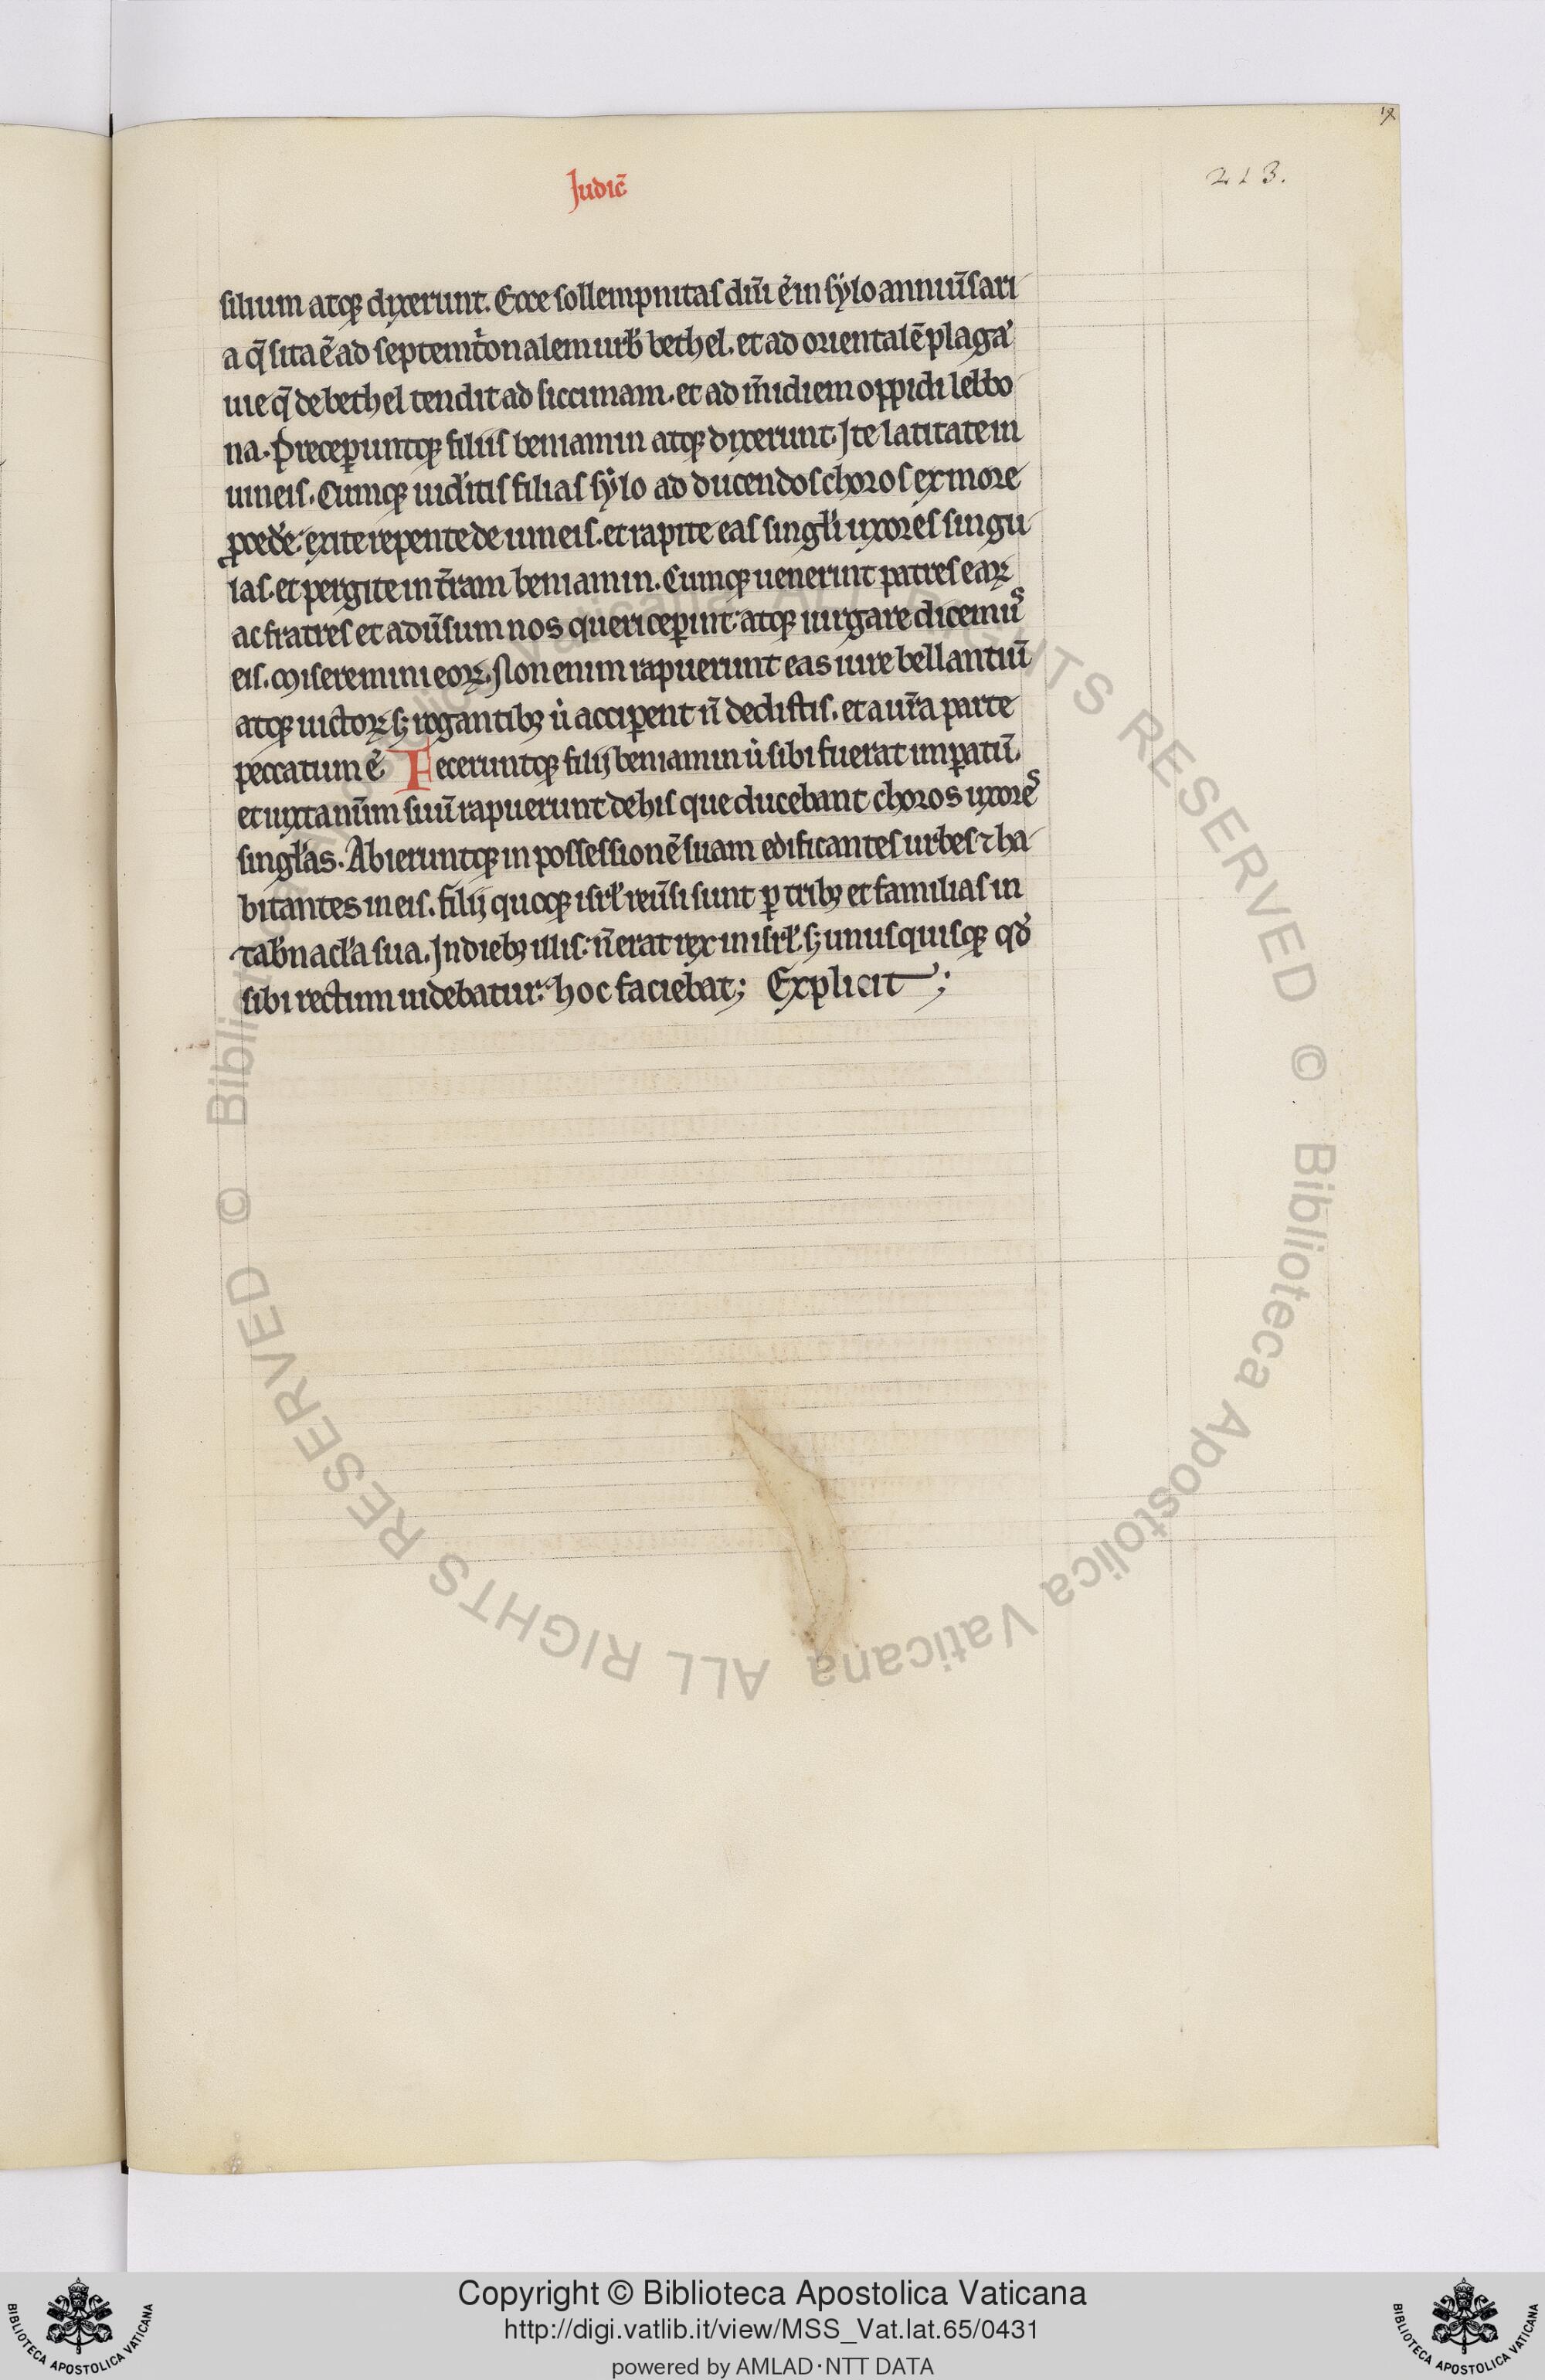 ıx
213.
Judic̄
silium atqꝫ dixerunt. Ecce sollempnitas dn̄i ē in sẏlo anniu̅sari
a q̄ sita ē ad septemt͛onalem urb̅ bethel. et ad orientalē plagā
uie q̄ de bethel tendit ad siccimam. et ad m̅idiem oppidi lebbo
na. Preceꝑuntqꝫ filiis beniamin atqꝫ dixerunt. Ite latitate in
uineis. Cumqꝫ uid̅itis filias sẏlo ad ducendos choros ex more
ꝓced̅e: exite repente de uineis. et rapite eas singl̅i uxores singu
las. et pergite in t̅ram beniamin. Cumqꝫ uenerint patres eaꝝ
ac fratres et adu̅sum nos queri ceꝑint: atqꝫ iurgare dicemus
eis. Miseremini eoꝝ. Non enim rapuerunt eas iure bellantiū
atqꝫ uictoꝝ sꝫ rogantibꝫ u̇ acciꝑent n̄ dedistis. et a ur̅a parte
peccatum ē. Feceruntqꝫ filij beniamin u̇ sibi fuerat imꝑatū.
et iuxta num̅ suū rapuerunt de his que ducebant choros uxores
singl̅as. Abieruntqꝫ in possessionē suam edificantes urbes ⁊ ha
bitantes in eis. filij quoqꝫ isrl̅ reu̅si sunt ꝑ tribꝫ et familias in
tab̅nacl̅a sua. In diebꝫ illis: n̄ erat rex in isrl̅. sꝫ unusquisqꝫ qd̅
sibi rectum uidebatur: hoc faciebat; Explicit;
© Biblioteca Apostolica Vaticana ALL RIGHTS RESERVED © Biblioteca Apostolica Vaticana ALL RIGHTS RESERVED
Copyright © Biblioteca Apostolica Vaticana
http://digi.vatlib.it/view/MSS_Vat.lat.65/0431
powered by AMLAD·NTT DATA
BIBLIOTECA APOSTOLICA VATICANA
BIBLIOTECA APOSTOLICA VATICANA